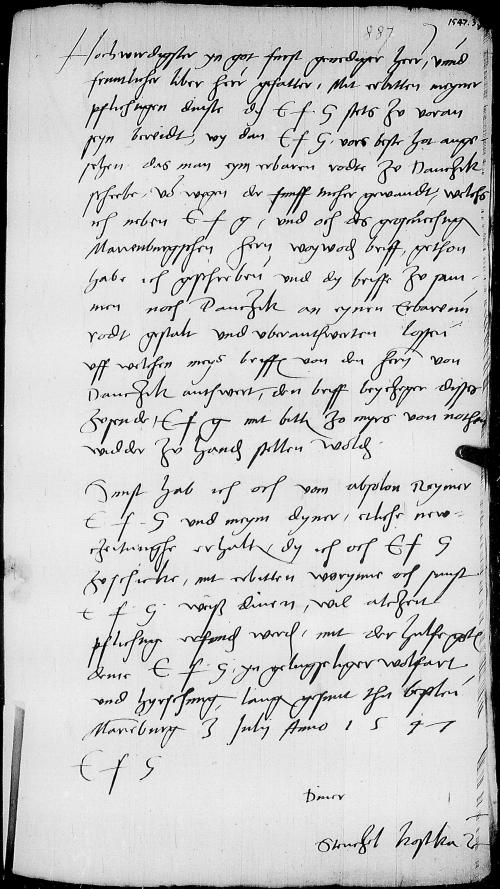 1547.3
887
Hochwirdigster yn got furst genediger herr, unnd
freuntlicher liber herr gefatter, Mit erbitten meyner
pflichtigen dinste dy E f G stets zu voran
seyn bereidt, wy dan E f G vors beste hot ange
sehen das man eym erbaren rodte zu Danczk
schribe, von wegen der funff nicher gewandt, welchs
ich neben E f g, und och des
Marienburgschen hern woywoden briff, gethon
habe ich geschriben und dy briffe zu sam-
men noch Danczk an eynen Erbaren
rodt gestalt und uberanthwerten lossen
uff welchen meyn briff von den hern von
Danczk anthwert, den briff beyczyger disser
zusende, E f g mit bitt zo myrs von nothen
widder zu handt stellen wold.
Sunst hab ich och vom absolon Reymer
E f G und meym dyner, etliche new-
czeitunghe erhalt, dy ich och E f G
zuschicke, mit erbitten worynne och sunst
E f G weiß dinen, wil alczeit
pflichtig erfunden werden, mit der hulfe gots
deme E f G yn geluchseliger wolfart
und hyrschung lang gesunt thu bephlen
Marienburg 3 July Anno 1 5 4 7
E f G
Diner
Stenczel Kostka